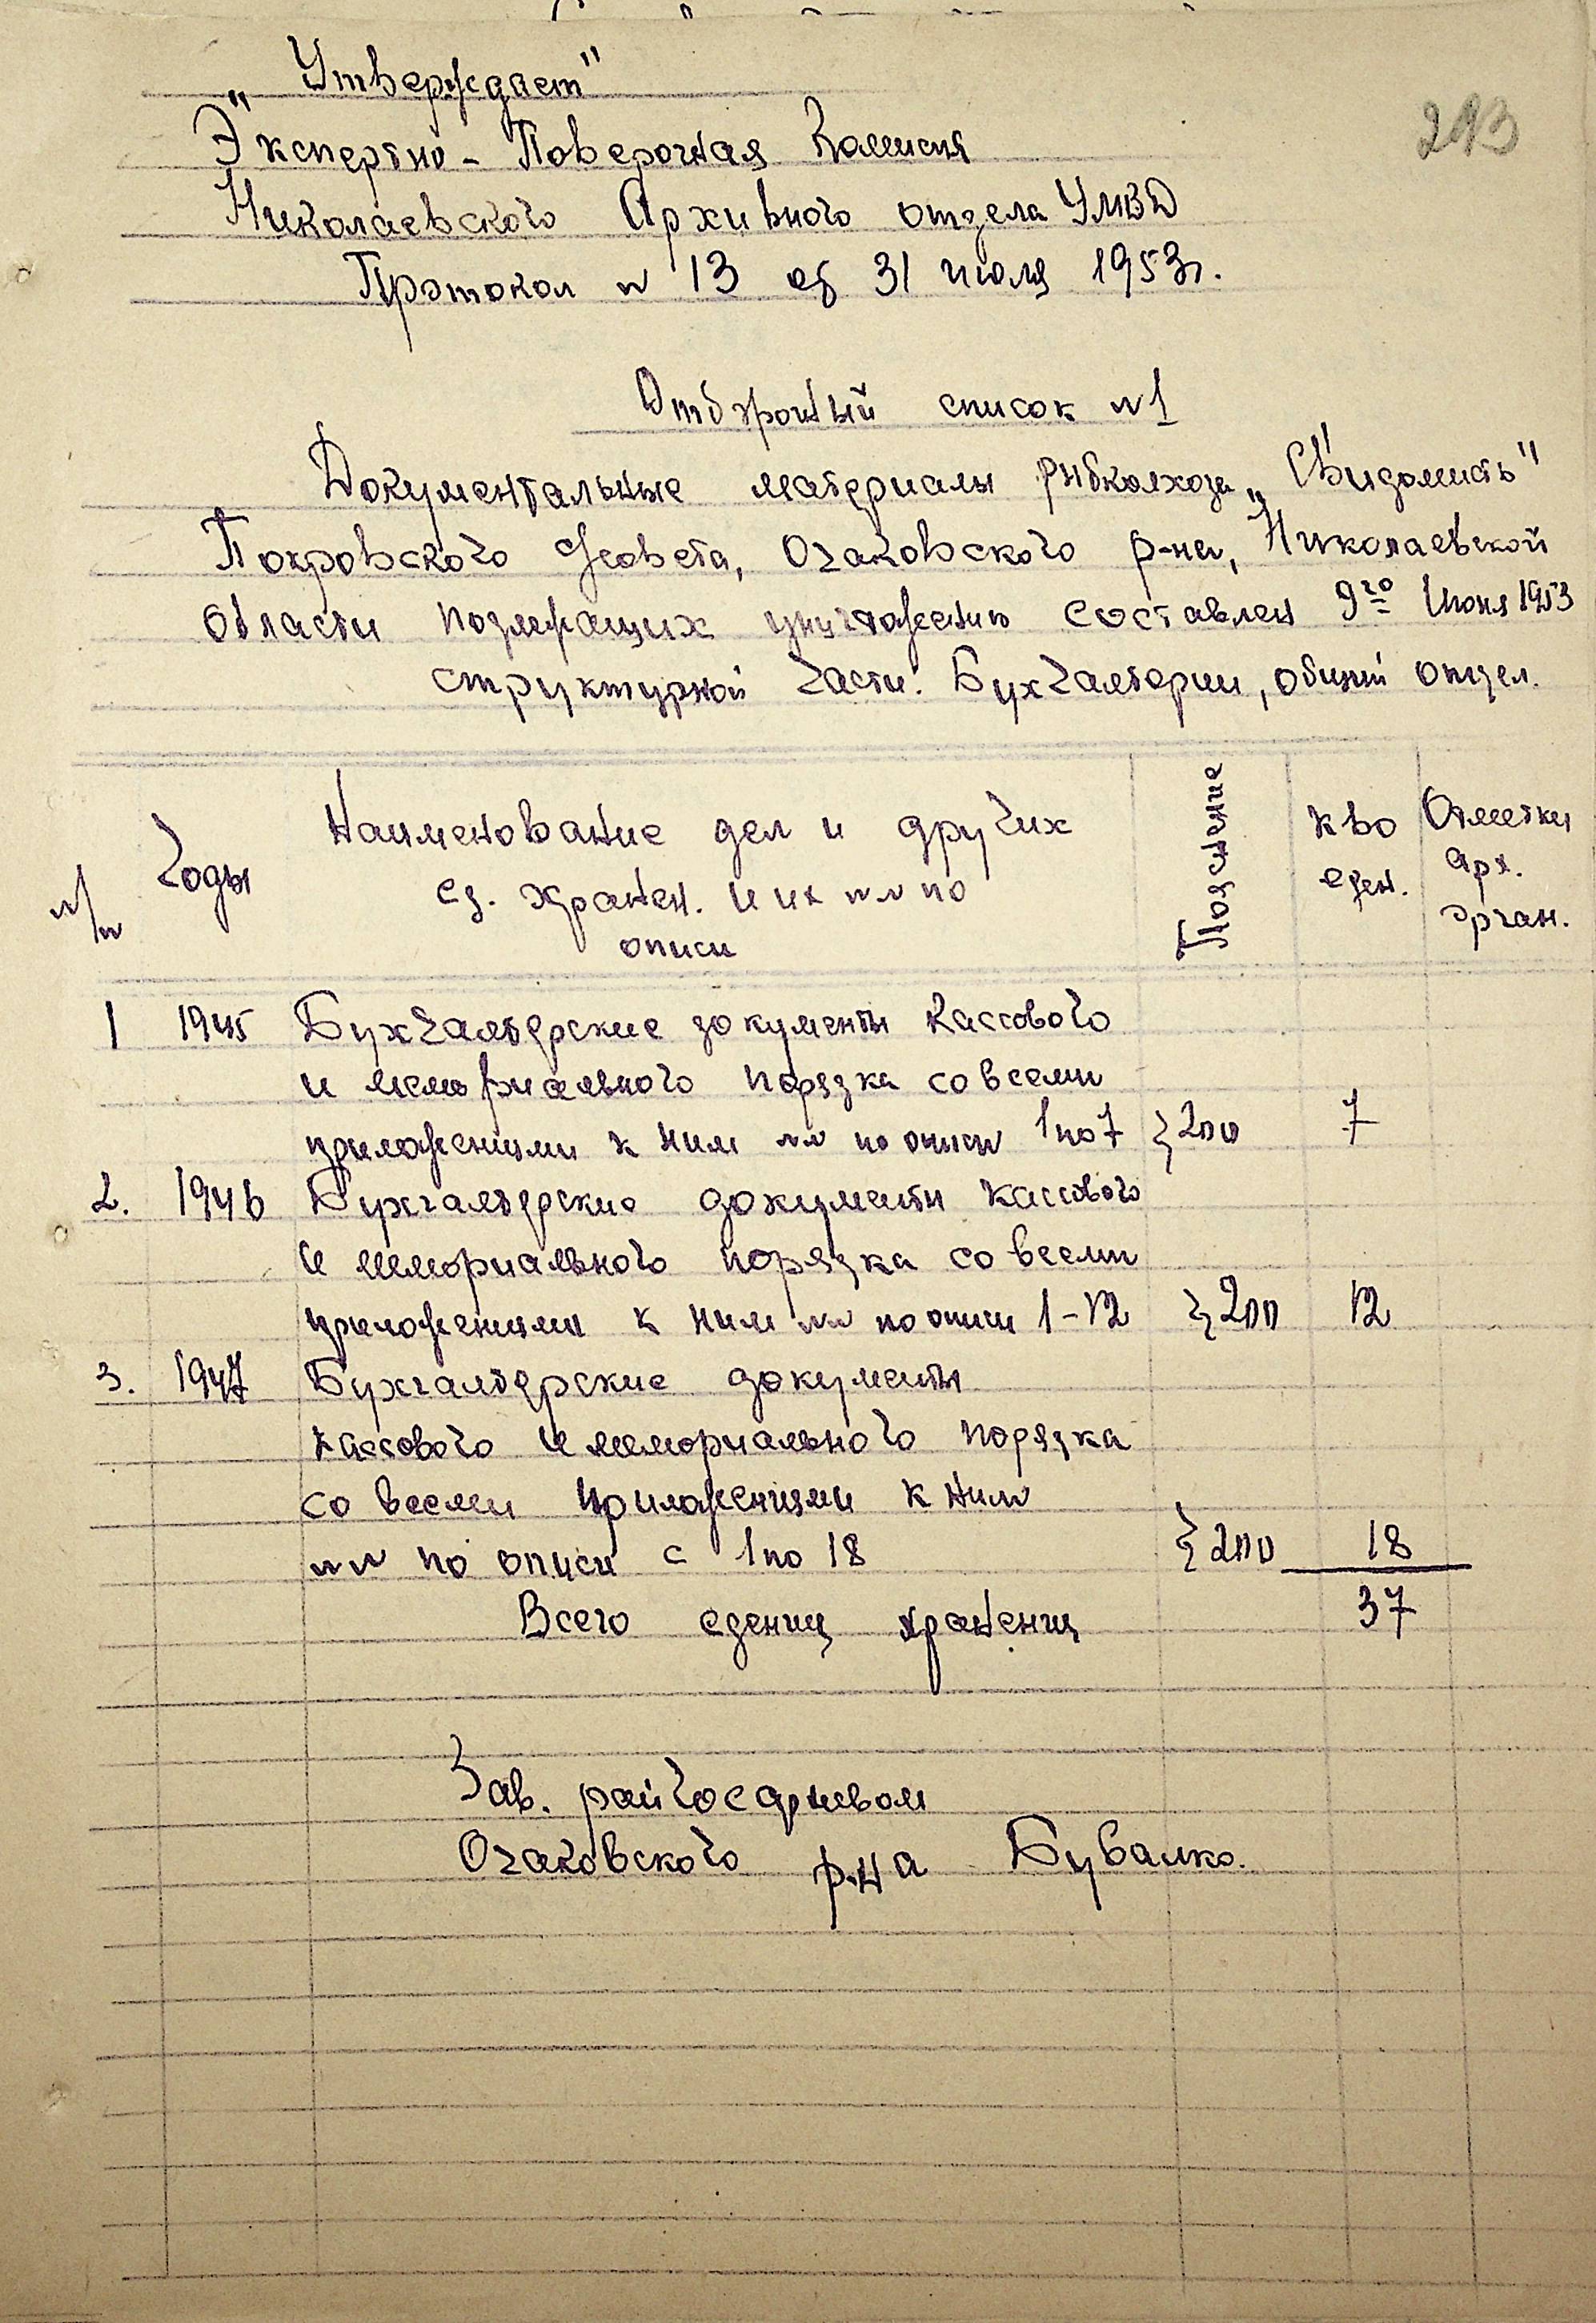 „Утверждает"
293
Экспертно-Поверочная Комисия
Николаевского Архивного отдела УМВД
Протокол № 13 от 31 июля 1953г.
Отборочный список №1
Документальные материалы рибколхоза „Свидомисть"
Покровского с/совета, Очаковского р-на, Николаевской
области подлежащих уничтожению составлен 9го Июня 1953
структурной части: Бухгалтерии, общий отдел.
№/№ Годы Наименование дел и других ед. хранен. и их №№ по описи Пояснение к во еден. Отметки арх. орган.
1 1945 Бухгалтерские документы кассового
и мемориального порядка со всеми
приложениями к ним №№ по описи 1 по 7 }200 7
2. 1946 Бухгалтерские документы кассового
и мемориального порядка со всеми
приложениями к ним №№ по описи 1-12 }200 12
3. 1947 Бухгалтерские документы
кассового и мемориального порядка
со всеми приложениями к ним
№№ по описи с 1 по 18 }200 18
Всего едениц хранениц 37
Зав. райгосархивом
Очаковского р-на Бувалко.